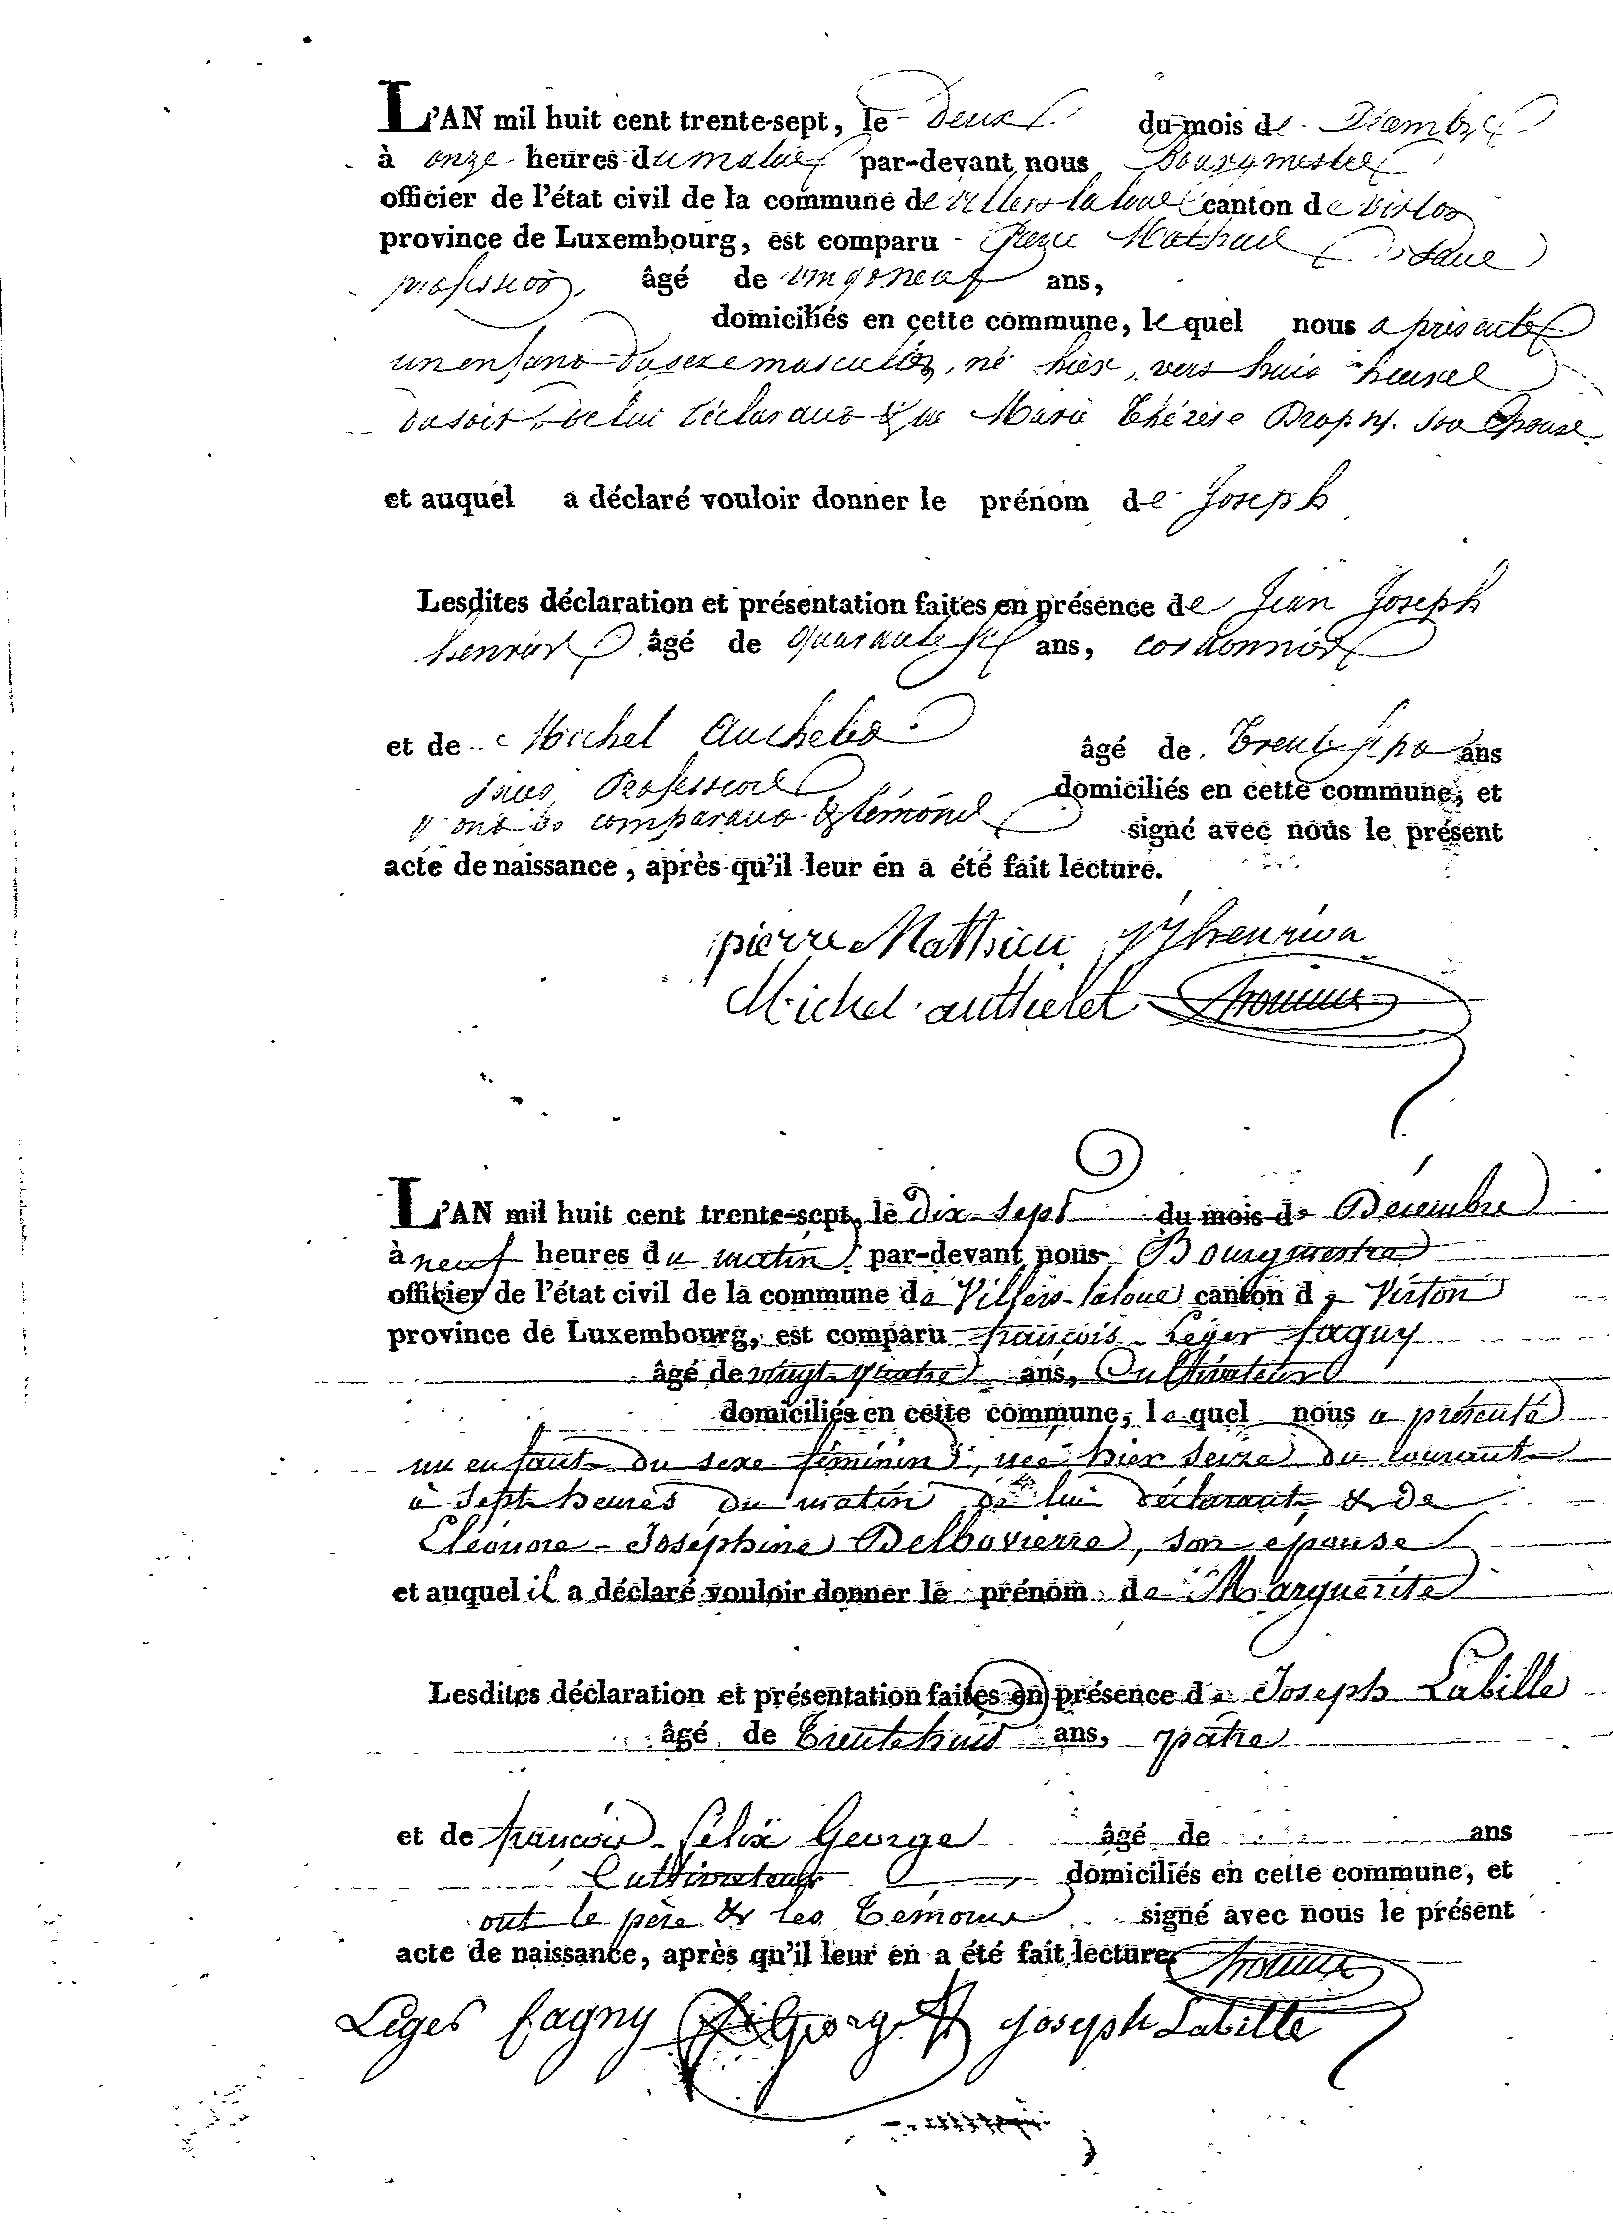 L'AN mil huit cent trente-sept, le deux du mois de Décembre
à onze heures du matin par-devant nous Bourgmestre
officier de l'état civil de la commune de villers la loue canton de virton
province de Luxembourg, est comparu Pierre Mathieu sans
profession, âgé de vingt neuf ans,
domiciliés en cette commune, lequel nous a présenté
un enfant du sexe masculin, né hier, vers huit heures
du soir, de lui déclarant & de Marie Thérèse son Epouse
et auquel a déclaré vouloir donner le prénom de Joseph
Lesdites déclaration et présentation faites en présence de Jean Joseph
henrion âgé de quarante six ans, cordonnier
et de Michel Authelet âgé de Trente sept ans
sans Profession domiciliés en cette commune, et
ont les comparant & témoins signé avec nous le présent
acte de naissance, après qu'il leur en a été fait lecture.
pierre Matthieu JJ henrion
Michel authelet
L'AN mil huit cent trente-sept, le dix-sept du mois de Décembre
à neuf heures du matin par-devant nous Bourgmestre
officier de l'état civil de la commune de Villers-laloue canton de Virton
province de Luxembourg, est comparu françois-Léger fagny
âgé de vingt-quatre ans, Cultivateur
domiciliés en cette commune, lequel nous a présenté
un enfant du sexe féminin, née hier seize du courant
à sept heures du matin de lui déclarant, & de
Eléonore-Joséphine Delbovierre, son épouse
et auquel il a déclaré vouloir donner le prénom de Marguerite
Lesdites déclaration et présentation faites en présence de Joseph Labille
âgé de Trente huit ans, pâtre
et de françois-félix George âgé de ans
Cultivateur domiciliés en cette commune, et
ont le père & les témoins signé avec nous le présent
acte de naissance, après qu'il leur en a été fait lecture.
Léger fagny George Joseph Labille